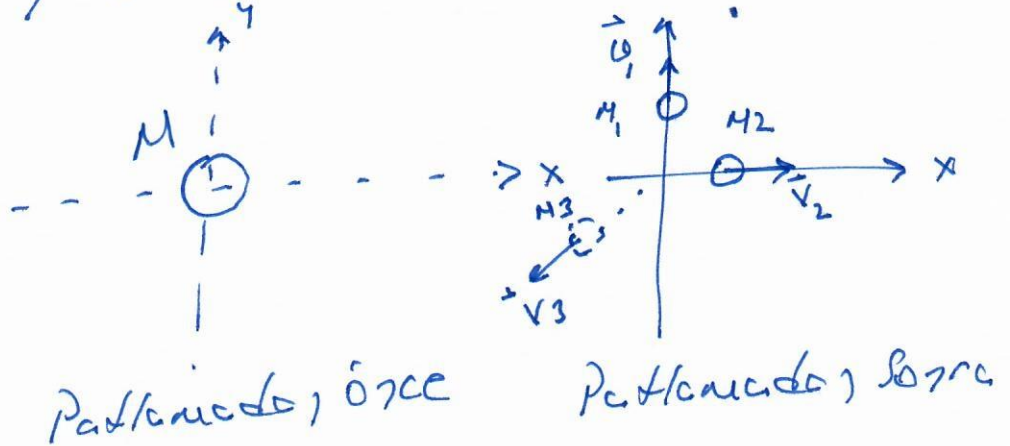 y
M
X
v⃗₁
M₁
M2
X
v⃗₂
M3
v⃗3
Patlamadan önce
Patlamadan Sonra